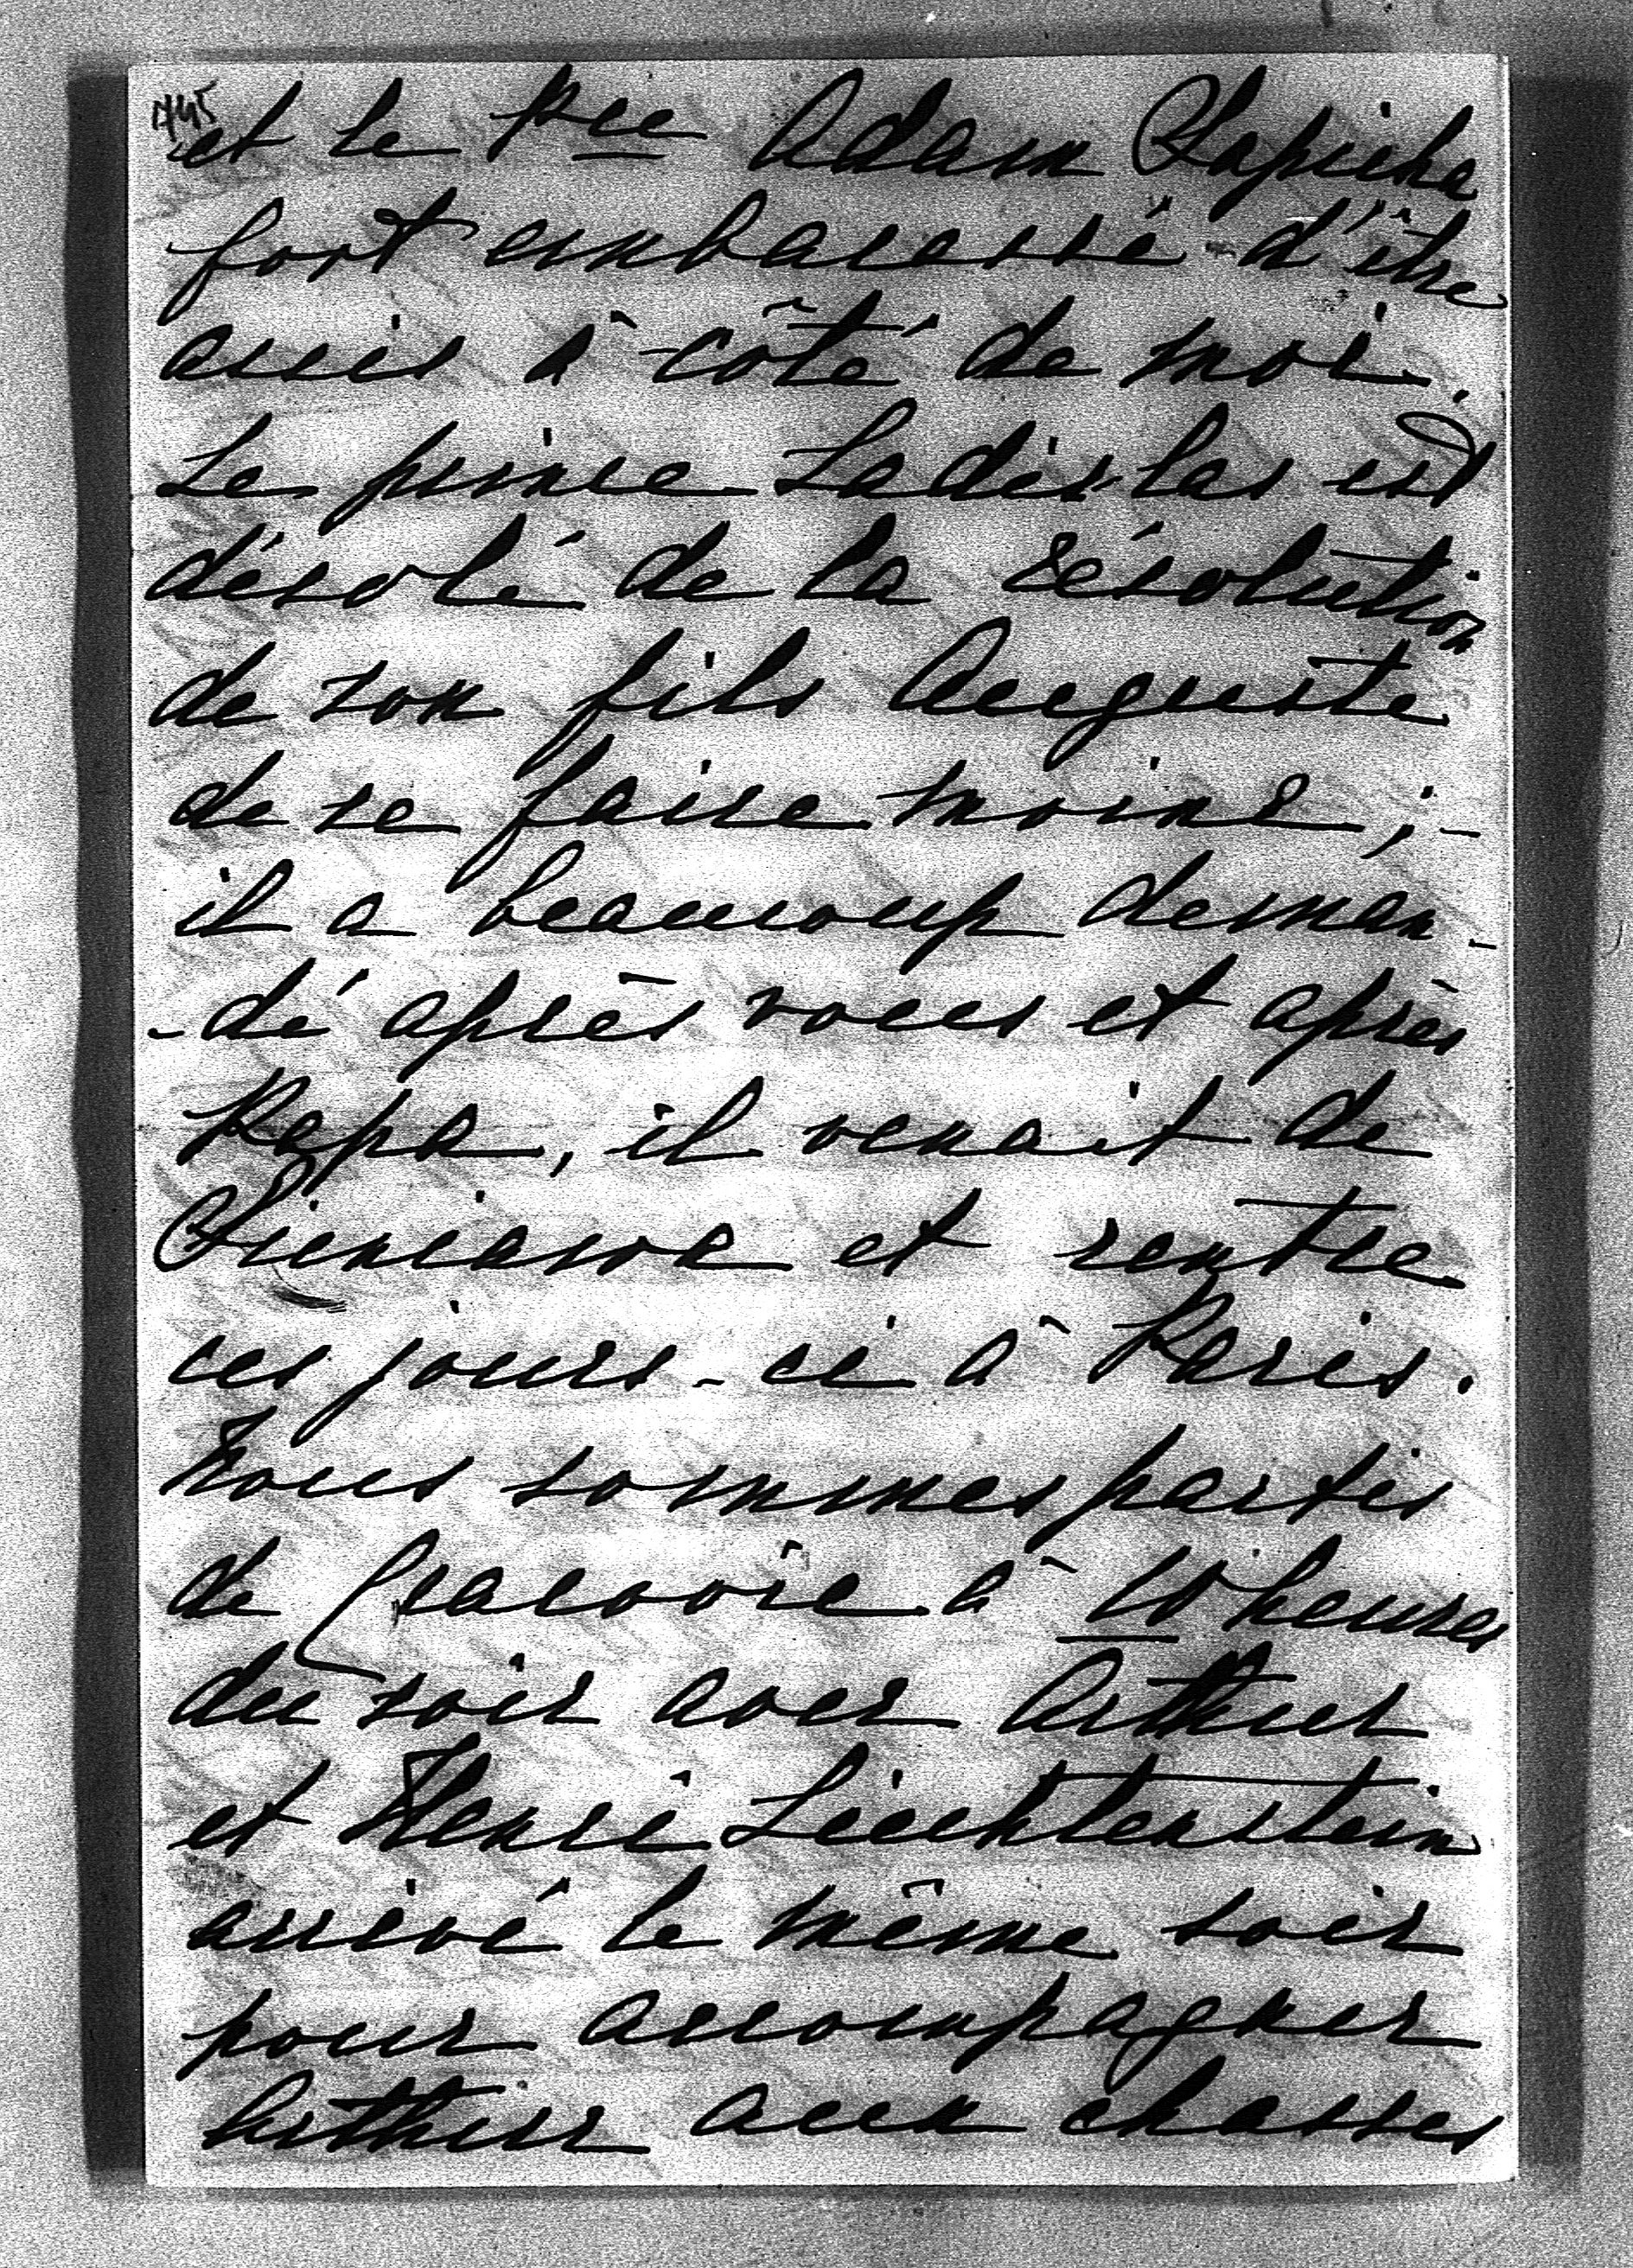 745
et le Pce Adam Sapieha
fort embarassé d'être
assis à côté de moi.
Le prince Ladislas est
désolé de la résolution
de son fils Auguste
de se faire moine ;-
il a beaucoup deman-
-dé après vous et après
Papa, il venait de
Sieniawa et rentre
ces jours-ci à Paris.
Nous sommes partis
de Cracovie à 10 heures
du soir avec Arthur
et Henri Liechtenstein
arrivé le même soir
pour accompagner
Arthur aux chasses